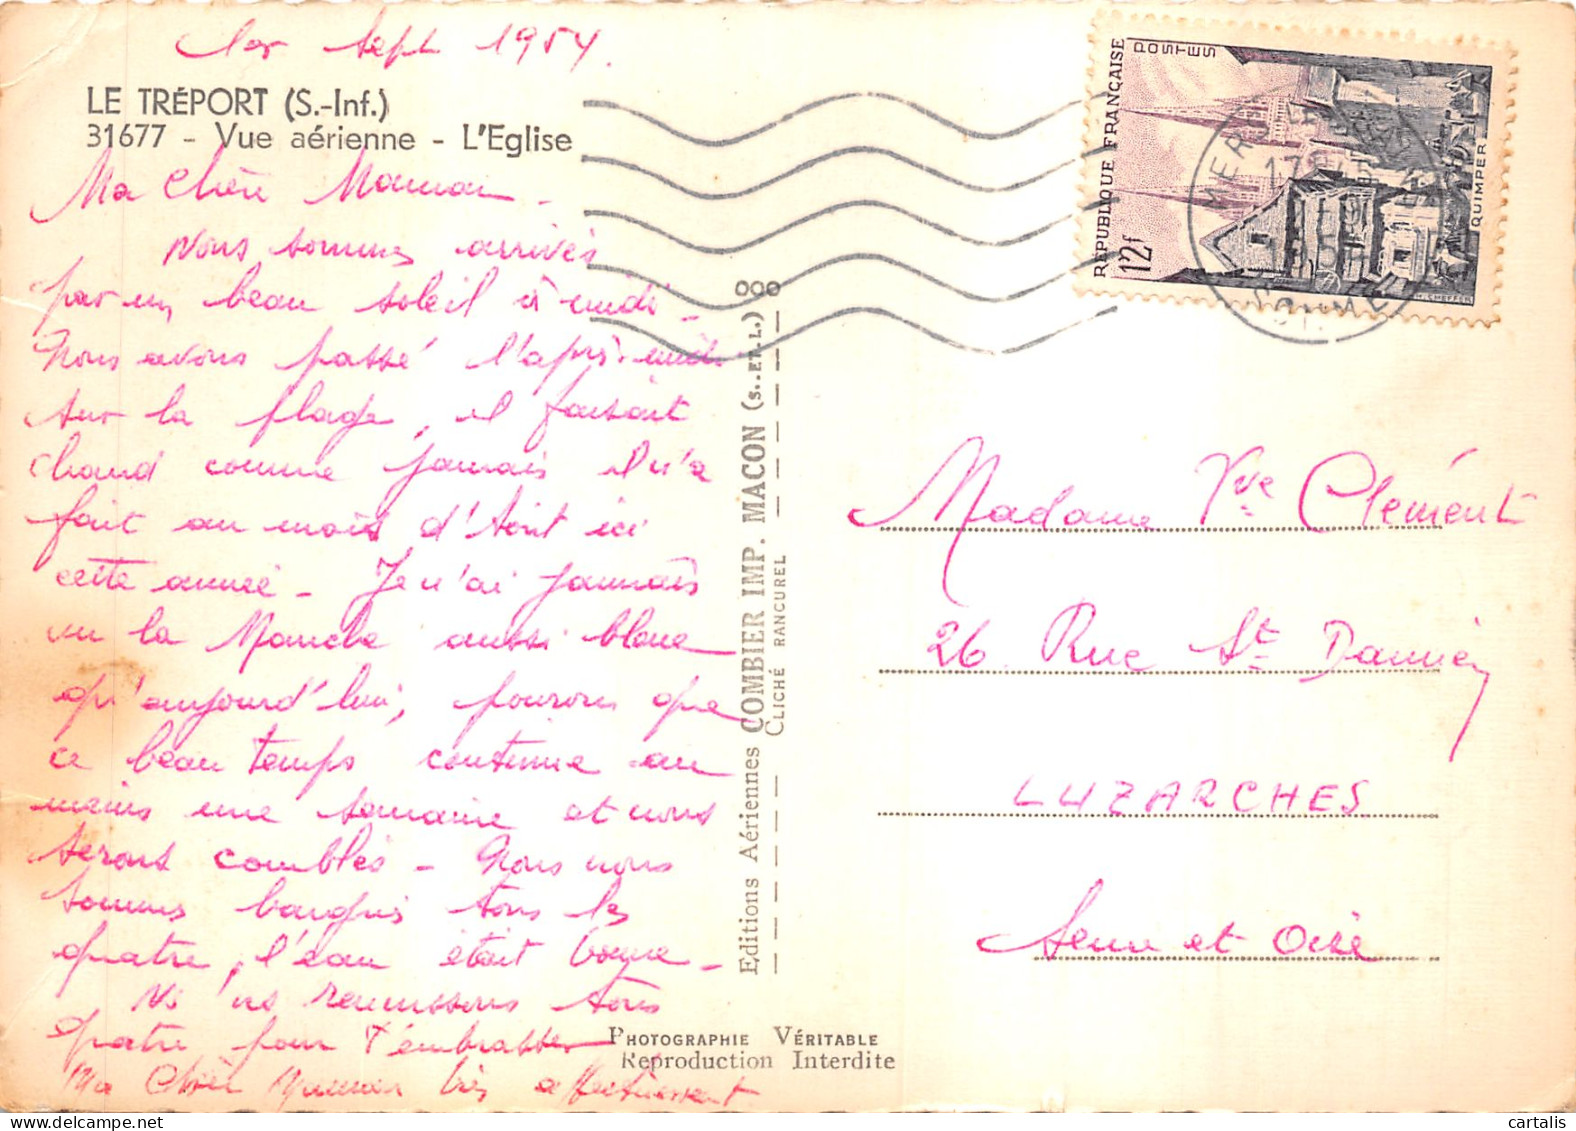 1er Sept 1954.
LE TRÉPORT (S.-Inf.)
31677 - Vue aérienne - L'Eglise
Ma Chère Maman -
Nous sommes arrivés
par un beau soleil à midi -
Nous avons passé l'après-midi
sur la plage, il faisait
chaud comme jamais il n'a
fait au mois d'Août ici
cette année - Je n'ai jamais
vu la Manche aussi bleue
qu'aujourd'hui, pourvu que
ce beau temps continue au
moins une semaine et nous
serons comblés - Nous nous
sommes baignés tous les
quatre, l'eau était bonne -
réunissons tous
quatre pour t'embrasser
Ma Chère Maman très affectueusement
OOO
Editions Aériennes COMBIER IMP. MACON (S.-ET-L.)
CLICHÉ RANCUREL
PHOTOGRAPHIE VÉRITABLE
Reproduction Interdite
RÉPUBLIQUE FRANÇAISE
POSTES
12f
QUIMPER
H. CHEFFER
MERS
SOMME
Madame Vve Clément
26 Rue St Damien
LUZARCHES
Seine et Oise
cartalis